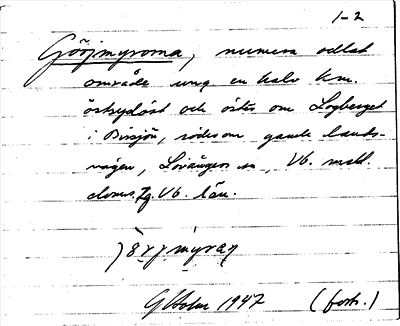 1-2
Gööjmyrorna, numera odlat
område ung en halv km.
östsydöst och öster om Logberget
i Bissjön, söder om gamla lands-
vägen, Lövångers sn, Vb. mell.
doms. Vb. län.
G Holm 1947 (forts.)